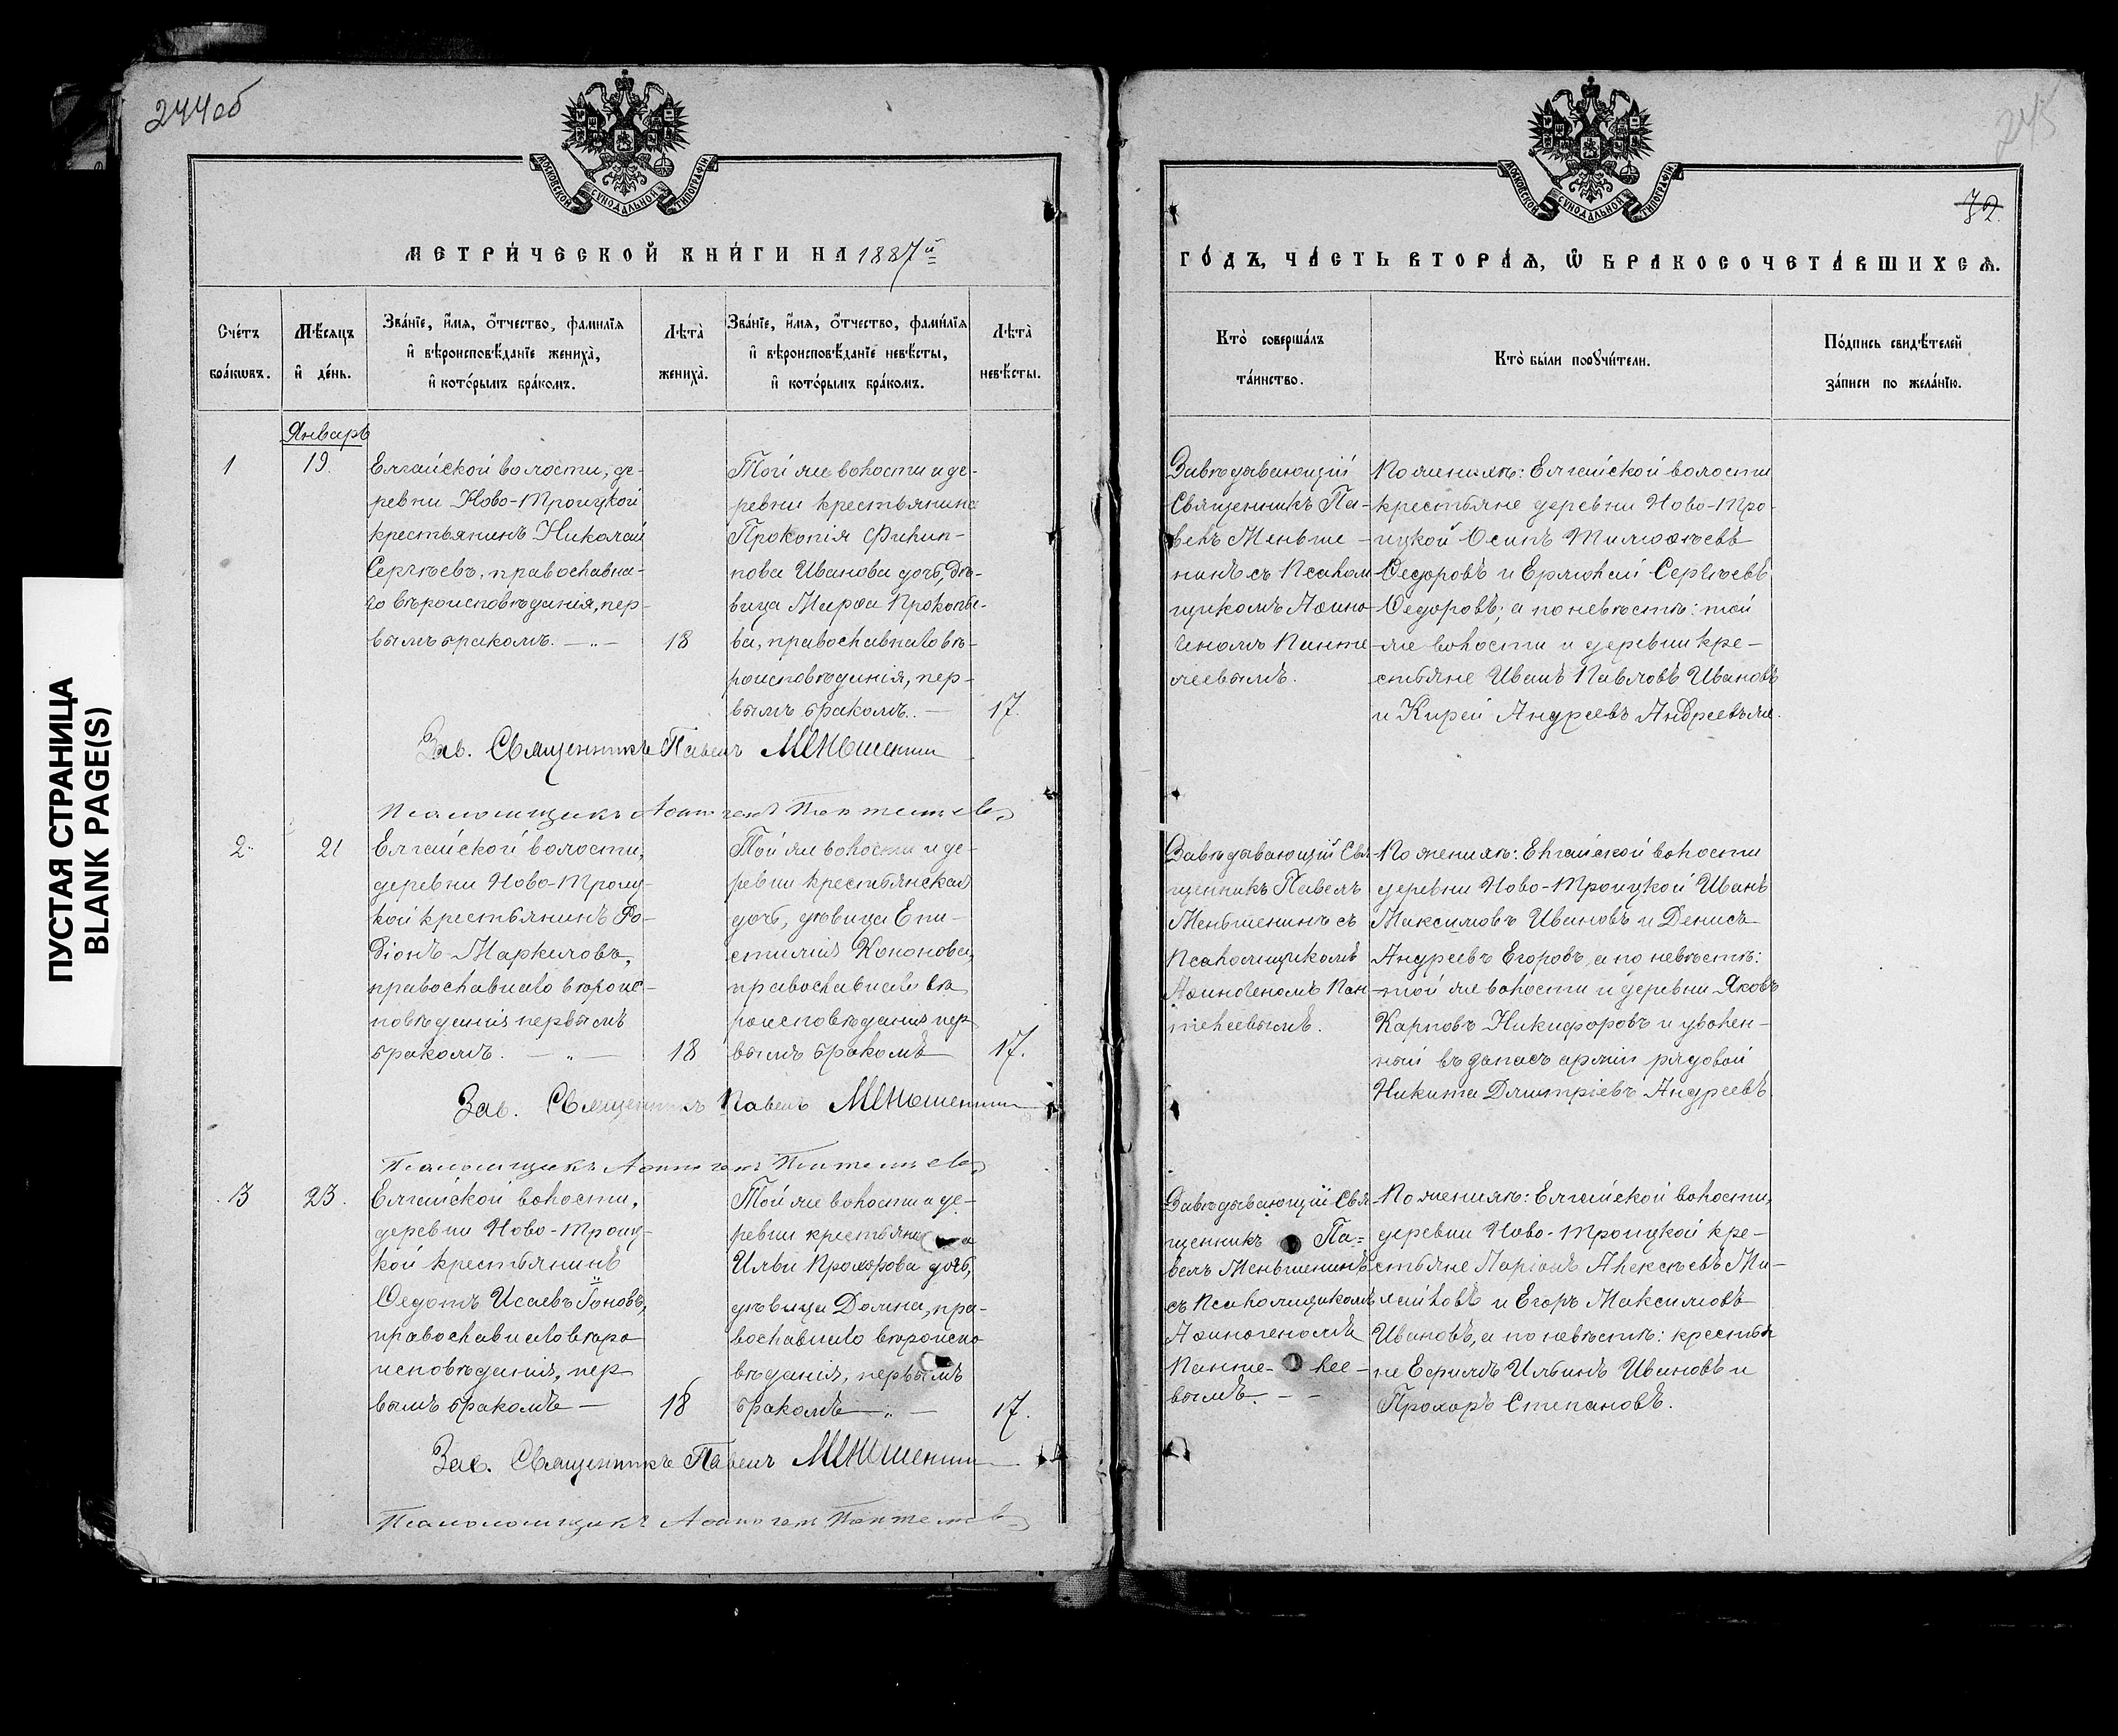 ПУСТАЯ СТРАНИЦА
BLANK PAGE(S)
244об
МОСКОВСКОЙ СѴНОДАЛЬНОЙ ТИПОГРАФІИ
МЕТРИ́ЧЕСКОЙ КНИ́ГИ НА 1887й
Сче́тъ бра́кѡвъ.
Мѣ́сѧцъ и҆ де́нь.
Зва́нїе, и҆́мѧ, о҆́тчество, фами́лїѧ
и҆ вѣроисповѣ́данїе жениха̀,
и҆ кото́рымъ бра́комъ.
Лѣ́та̀ жениха̀.
Зва́нїе, и҆́мѧ, о҆́тчество, фами́лїѧ
и҆ вѣроисповѣ́данїе невѣ́сты,
и҆ кото́рымъ бра́комъ.
Лѣ́та̀ невѣ́сты.
Январь
1
19.
Елгайской волости, де-
ревни Ново-Троицкой
крестьянинъ Николай
Сергѣевъ, православна-
го вѣроисповѣданія, пер-
вымъ бракомъ. —„—
18
Той же волости и де-
ревни крестьянина
Прокопія Филип-
пова Иванова дочь, дѣ-
вица Марѳа Прокопье-
ва, православнаго вѣ-
роисповѣданія, пер-
вымъ бракомъ. —
17.
Зав. Священникъ Павелъ Меньшенин
Псаломщикъ Аѳиногенъ Пантелеевъ
2
21
Елгайской волости,
деревни Ново-Троиц-
кой крестьянинъ Ро-
діонъ Маркиловъ,
православнаго вѣроис-
повѣданія первымъ
бракомъ. — „ —
18
Той же волости и де-
ревни крестьянская
дочь, дѣвица Епи-
стимія Кононова,
православнаго вѣ
роисповѣданія пер
вымъ бракомъ
17.
Зав. Священникъ Павелъ Меньшенин
Псаломщикъ Аѳиногенъ Пантелеевъ
3
23.
Елгайской волости,
деревни Ново-Троиц-
кой крестьянинъ
Ѳедотъ Исаевъ
православнаго вѣро
исповѣданія, пер
вымъ бракомъ —
18
Той же волости и де-
ревни крестьяни на
Ильи Прохорова дочь,
дѣвица Домна, пра-
вославнаго вѣроиспо
вѣданія, первымъ
бракомъ —„—
17.
Зав. Священникъ Павелъ Меньшенин
Псаломщикъ Аѳиногенъ Пантелеевъ
245
32.
МОСКОВСКОЙ СѴНОДАЛЬНОЙ ТИПОГРАФІИ
ГО́ДЪ, ЧА́СТЬ ВТОРА́Ѧ, Ѡ҆ БРАКОСОЧЕТА́ВШИХСѦ.
Кто̀ соверша́лъ
та́инство.
Кто̀ бы́ли порꙋчи́тели.
По́дпись свидѣ́телей
за́писи по жела́нїю.
Завѣдывающій
Священникъ Па-
велъ Меньше-
нинъ съ Псалом
щикомъ Аѳино-
геномъ Панте
леевымъ.
По женихѣ: Елгайской волости
крестьяне деревни Ново-Тро-
ицкой Осипъ Тимоѳѣевъ
Ѳедоровъ и Ермолай Сергѣевъ
Ѳедоровъ; а по невѣстѣ: той
же волости и деревни кре-
стьяне Иванъ Павловъ Ивановъ
и Кирей Андреевъ Андреевъ же.
Завѣдывающій Свя-
щенникъ Павелъ
Меньшенинъ съ
Псаломщикомъ
Аѳиногеномъ Пан
телеевымъ.
По женихѣ: Елгайской волости
деревни Ново-Троицкой Иванъ
Максимовъ Ивановъ и Денисъ
Андреевъ Егоровъ, а по невѣстѣ:
той же волости и деревни Яковъ
Карповъ Никифоровъ и уволен-
ный въ запасъ арміи рядовой
Никита Дмитріевъ Андреевъ.
Завѣдывающій Свя
щенникъ Па-
велъ Меньшенинъ
съ Псаломщикомъ
Аѳиногеномъ
Панте- лее-
вымъ. — —
По женихѣ: Елгайской волости,
деревни Ново-Троицкой кре-
стьяне Ларіонъ Алексѣевъ Ми-
хайловъ и Егоръ Максимовъ
Ивановъ, а по невѣстѣ: крестья
не Ефимъ Ильинъ Ивановъ и
Прохоръ Степановъ.